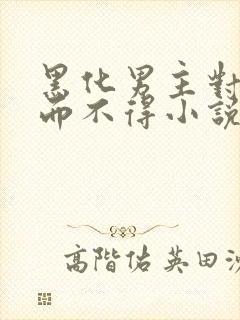 黑化男主對
而不得小說
高階佑英田